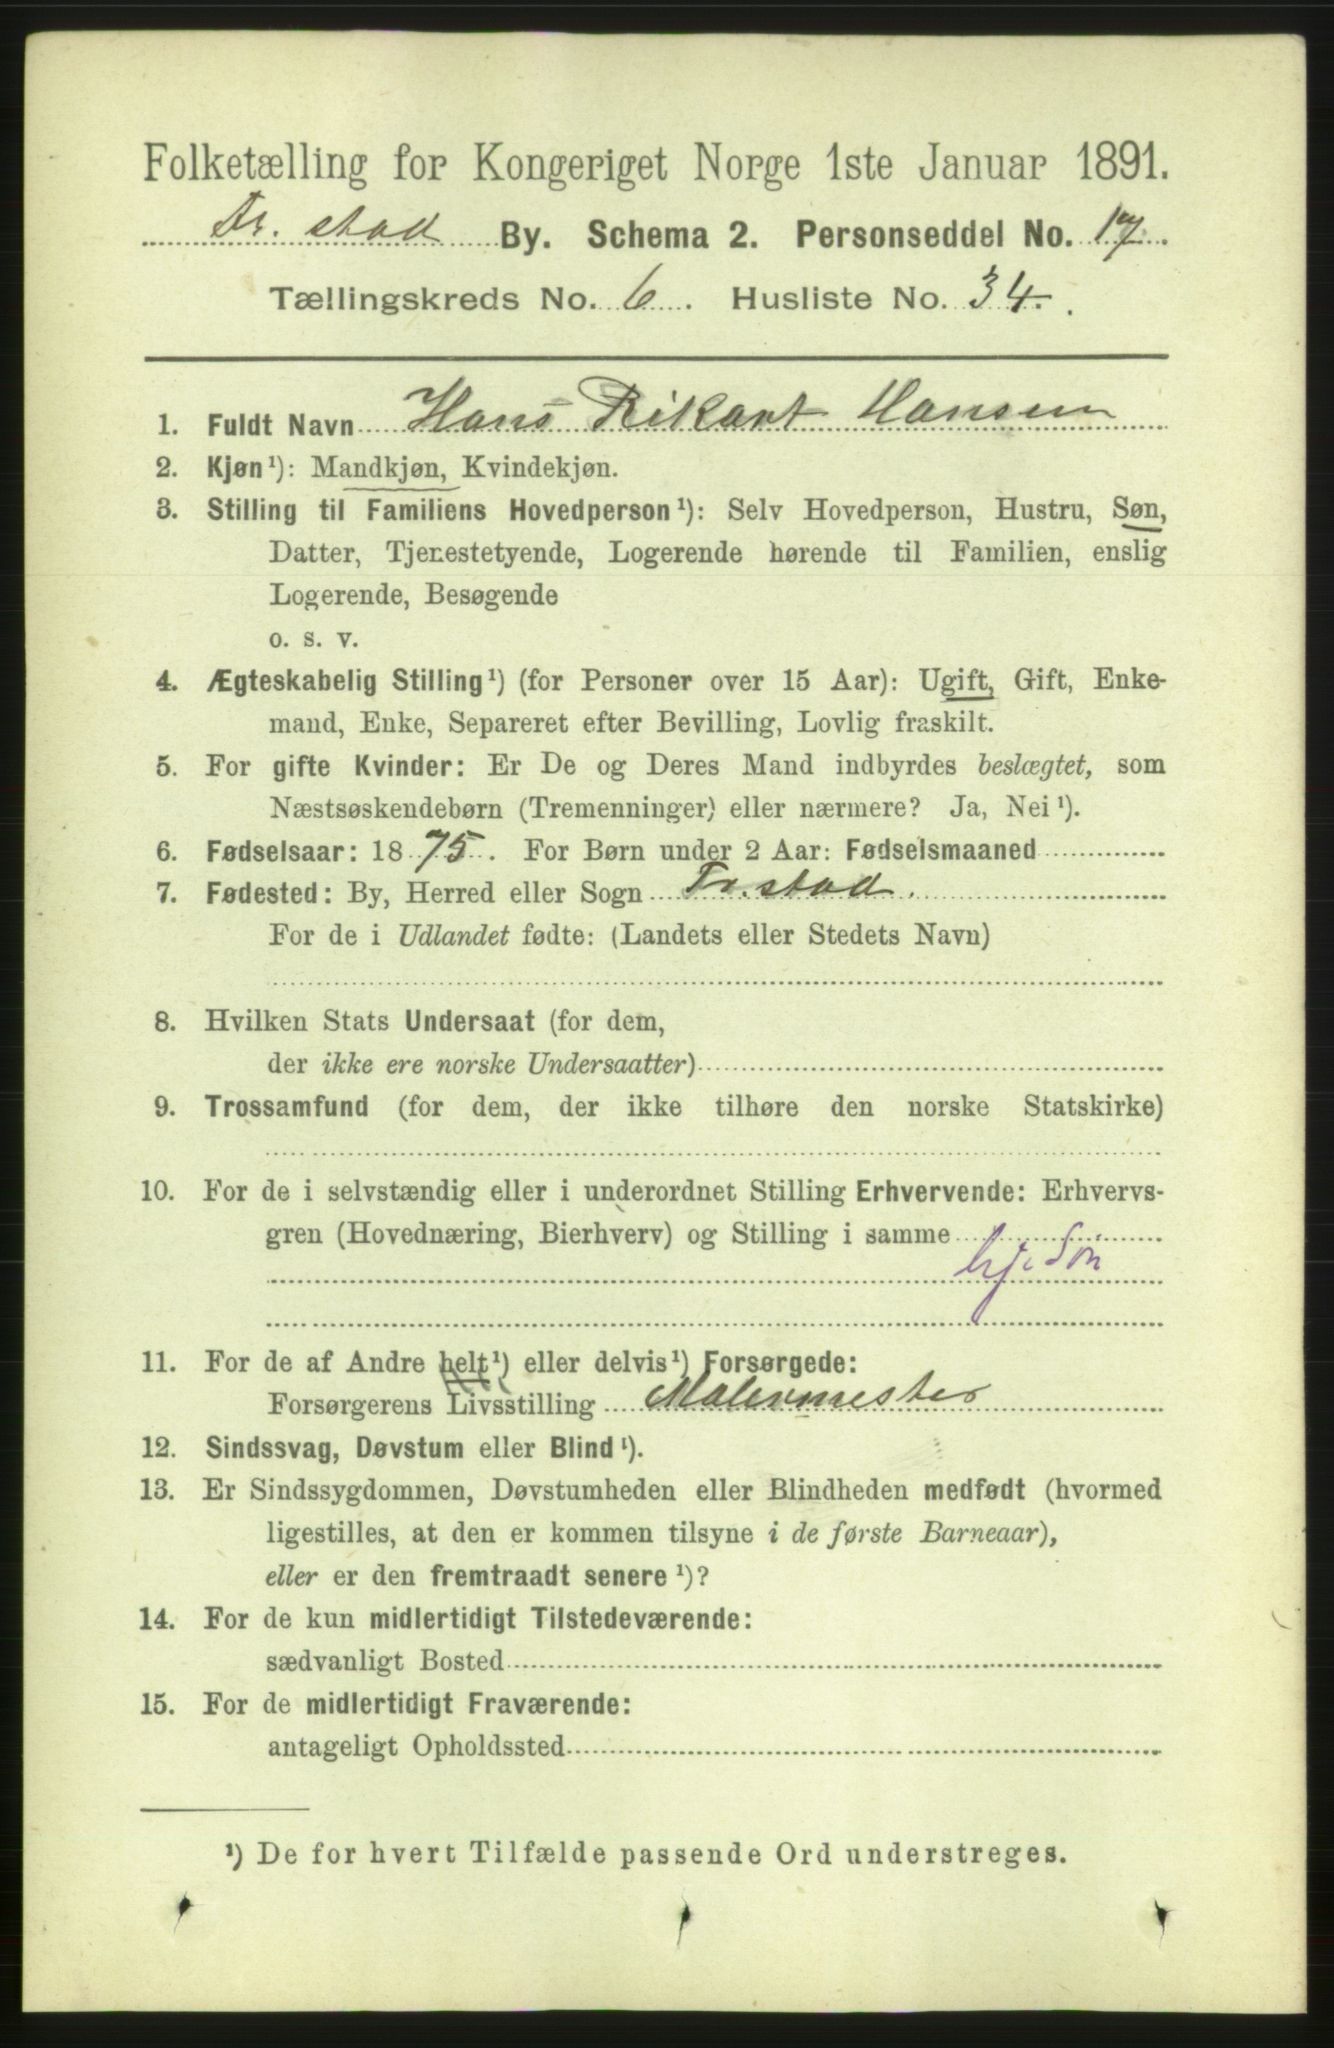 Folketælling for Kongeriget Norge 1ste Januar 1891.
Fr. stad By. Schema 2. Personseddel No. 17.
Tællingskreds No. 6. Husliste No. 34.
1. Fuldt Navn Hans Rikart Hansen
2. Kjøn ¹): Mandkjøn, Kvindekjøn.
3. Stilling til Familiens Hovedperson ¹): Selv Hovedperson, Hustru, Søn,
Datter, Tjenestetyende, Logerende hørende til Familien, enslig
Logerende, Besøgende
o. s. v.
4. Ægteskabelig Stilling ¹) (for Personer over 15 Aar): Ugift, Gift, Enke-
mand, Enke, Separeret efter Bevilling, Lovlig fraskilt.
5. For gifte Kvinder: Er De og Deres Mand indbyrdes beslægtet, som
Næstsøskendebørn (Tremenninger) eller nærmere? Ja, Nei ¹).
6. Fødselsaar: 1875. For Børn under 2 Aar: Fødselsmaaned
7. Fødested: By, Herred eller Sogn Fr. stad.
For de i Udlandet fødte: (Landets eller Stedets Navn)
8. Hvilken Stats Undersaat (for dem,
der ikke ere norske Undersaatter)
9. Trossamfund (for dem, der ikke tilhøre den norske Statskirke)
10. For de i selvstændig eller i underordnet Stilling Erhvervende: Erhvervs-
gren (Hovednæring, Bierhverv) og Stilling i samme
hj. Søn
11. For de af Andre helt ¹) eller delvis ¹) Forsørgede:
Forsørgerens Livsstilling Malermester
12. Sindssvag, Døvstum eller Blind ¹).
13. Er Sindssygdommen, Døvstumheden eller Blindheden medfødt (hvormed
ligestilles, at den er kommen tilsyne i de første Barneaar),
eller er den fremtraadt senere ¹)?
14. For de kun midlertidigt Tilstedeværende:
sædvanligt Bosted
15. For de midlertidigt Fraværende:
antageligt Opholdssted
¹) De for hvert Tilfælde passende Ord understreges.